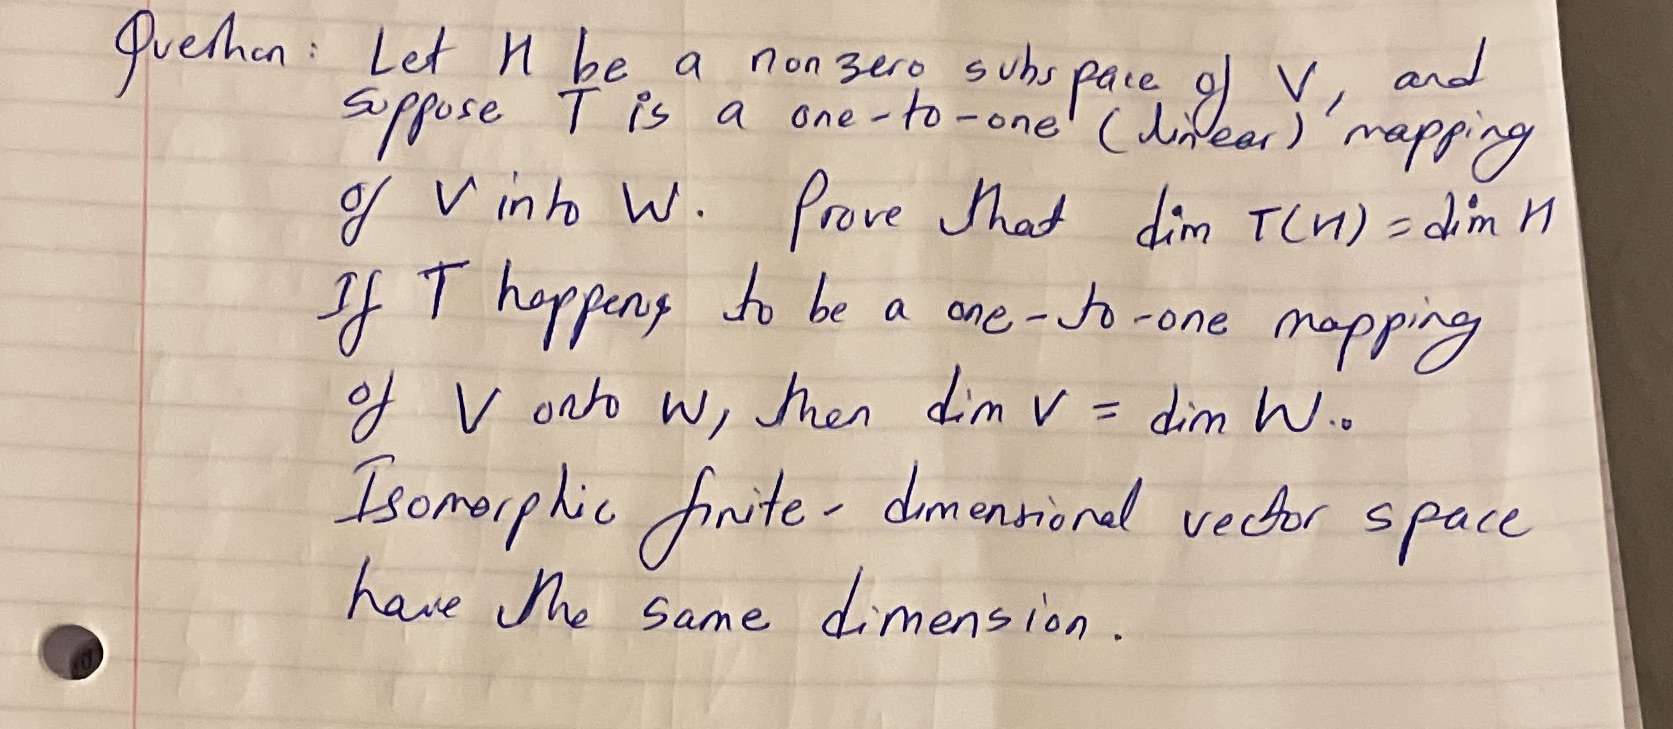 Question: Let H be a nonzero subspace of V, and
suppose T is a one-to-one (linear) mapping
of V into W. Prove that dim T(H) = dim H
If T happens to be a one-to-one mapping
of V onto W, then dim V = dim W..
Isomorphic finite-dimensional vector space
have the same dimension.